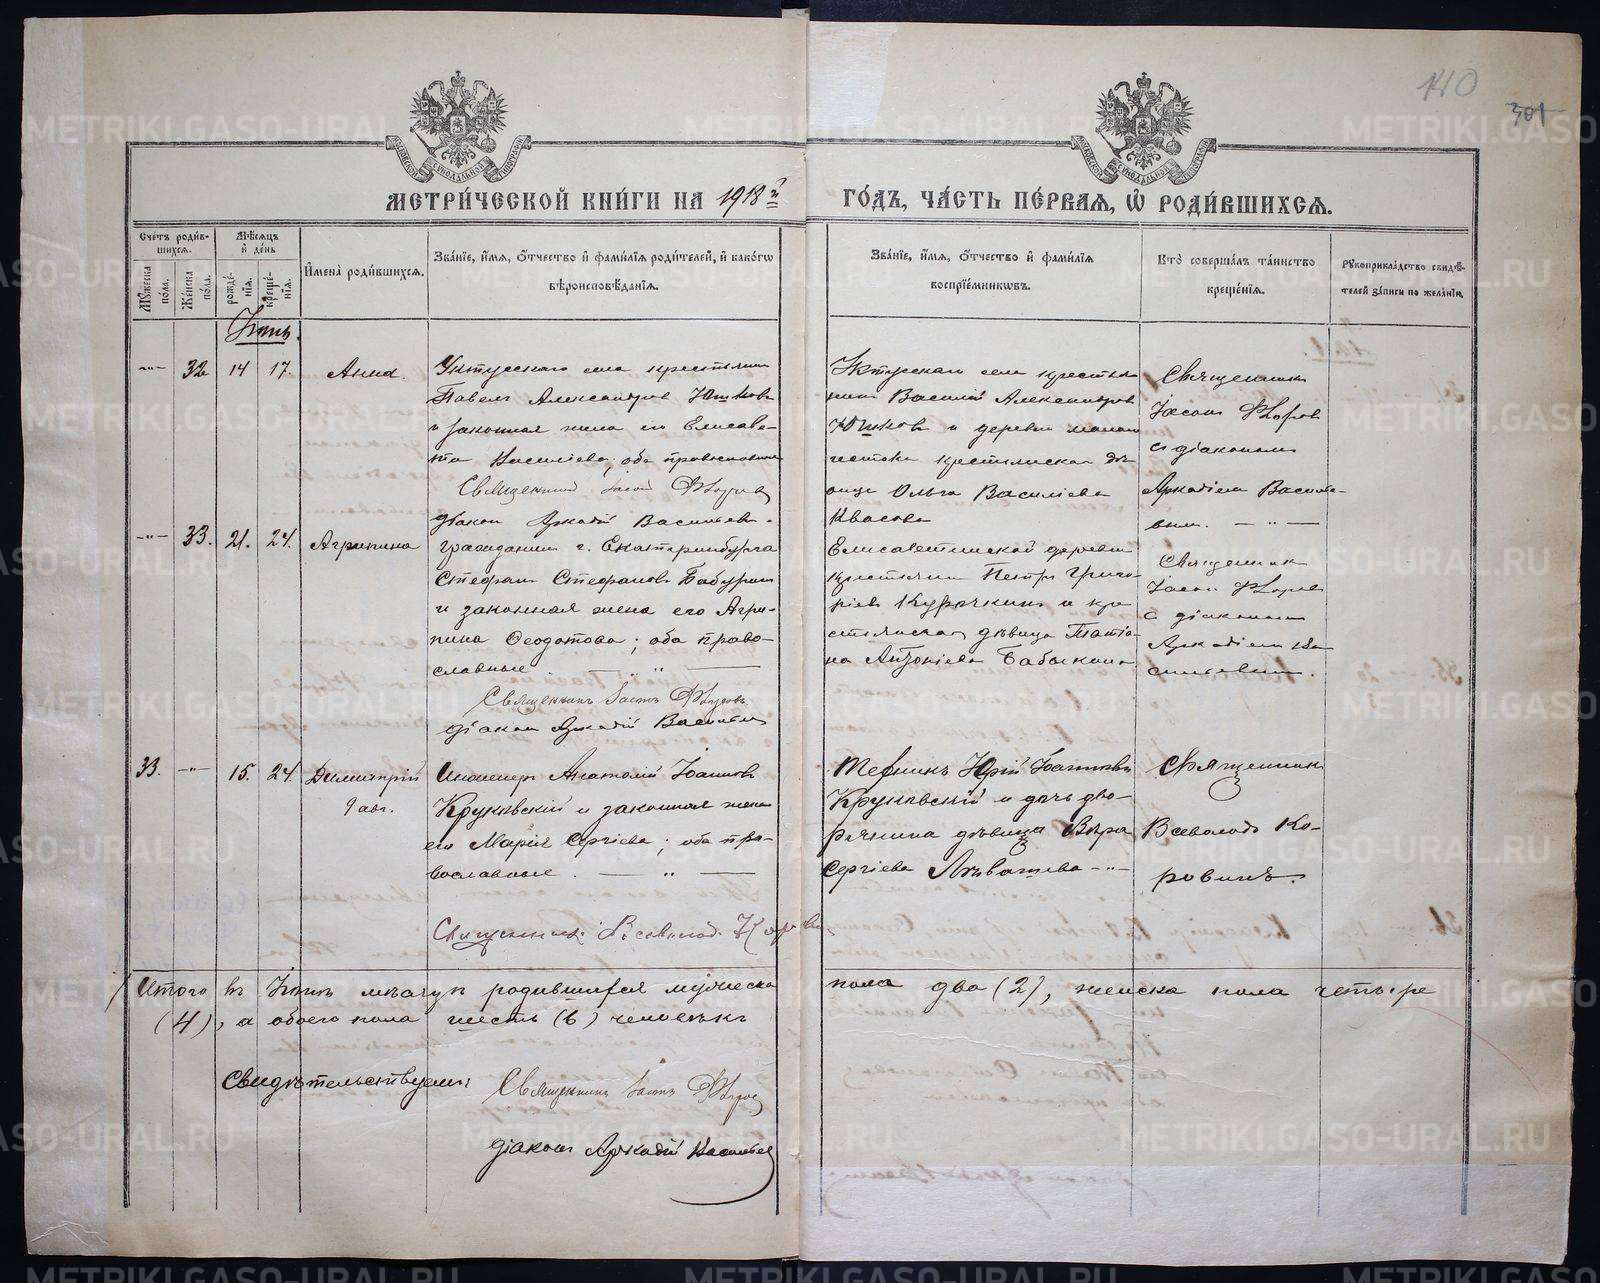 140
301
МЕТРИ́ЧЕСКОЙ КНИ́ГИ НА 1918й ГО́ДЪ, ЧА́СТЬ ПЕ́РВАЯ, Ѡ РОДИ́ВШИХСЯ.
Сче́тъ роди́вшихся.
Му́жеска по́ла.
Же́нска по́ла.
Мѣ́сяцъ и де́нь
рожде́нїя.
креще́нїя.
Имена̀ роди́вшихся.
Зва́нїе, и́мя, о́тчество и фами́лїя роди́телей, и како́гѡ
вѣроисповѣ́данїя.
Зва́нїе, и́мя, о́тчество и фами́лїя
воспрїе́мникѡвъ.
Кто̀ соверша́лъ та́инство
креще́нїя.
Рукоприкла́дство свидѣ́телей за́писи по жела́нїю.
Іюнь.
32 14 17 Анна.
Уктусскаго села крестьянин
Павелъ Александров Юшков
и законная жена его Елисаве-
та Василіева, оба православные
Священник Іасон Флоров
діакон Аркадій Васильев.
Уктусскаго села крестья-
нин Василій Александров
Юшков и деревни малаго
истока крестьянская дѣ-
вица Ольга Василіева
Квасова
Священник
Іасон Флоров
с діаконом
Аркадіем Василье-
вым.
33. 21. 24. Агрипина
гражданин г. Екатеринбурга
Стефан Стефанов Бабурин
и законная жена его Агри-
пина Феодотова; оба право-
славные.
Священникъ Іасонъ Флоровъ
діакон Аркадій Васильев
Елисаветинской деревни
крестьянин Петръ Григо-
ріев Курочкин и кре-
стьянская дѣвица Татіа-
на Антоніева Бабыкина
Священник
Іасон Флоров
с діаконом
Аркадіем Ва-
сильевым.
33. 15. 24. Димитрій
Инженер Анатолій Іоаннов
Круковскій и законная жена
его Марія Сергіева; оба пра-
вославные.
Священникъ Всеволод
Техникъ Юрій Іоаннов
Круковскій и дочь дво-
рянина дѣвица Вѣра
Сергіева
Священник
Всеволодъ Ко-
ровинъ.
Итого въ Іюнѣ мѣсяцѣ родившихся мужеска пола два (2), женска пола четыре
(4), а обоего пола шесть (6) человѣкъ
Свидѣтельствуемъ:
Священникъ Іасонъ Флоров
діаконъ Аркадій Васильев
METRIKI.GASO-URAL.RU